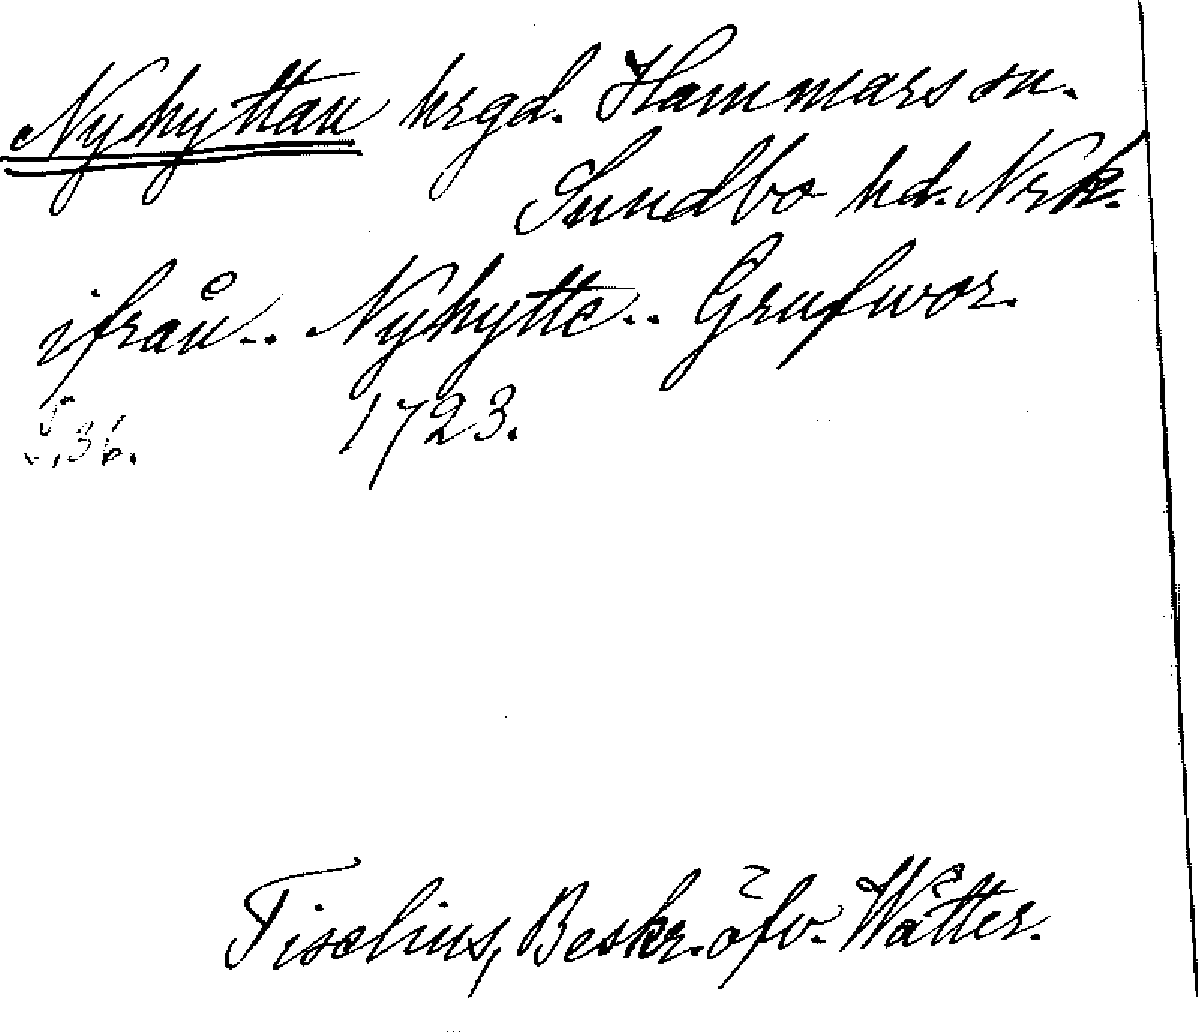 Nyhyttan hrgd. Hammars sn.
Sundbo hd. Nrk.
ifrån.. Nyhytte.. Grufwor.
1723.
S, 36.
Tiselius, Beskr. öfv. Wätter.